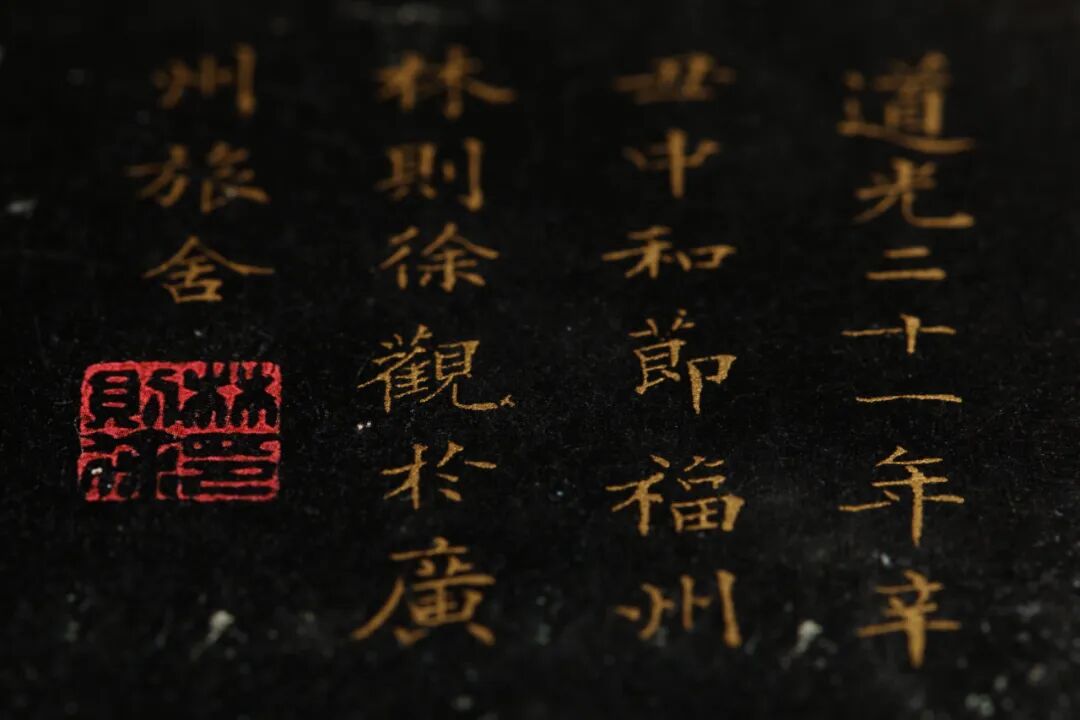 道光二十一年辛
丑中和節福州
林則徐觀於廣
州旅舍
林印
則徐